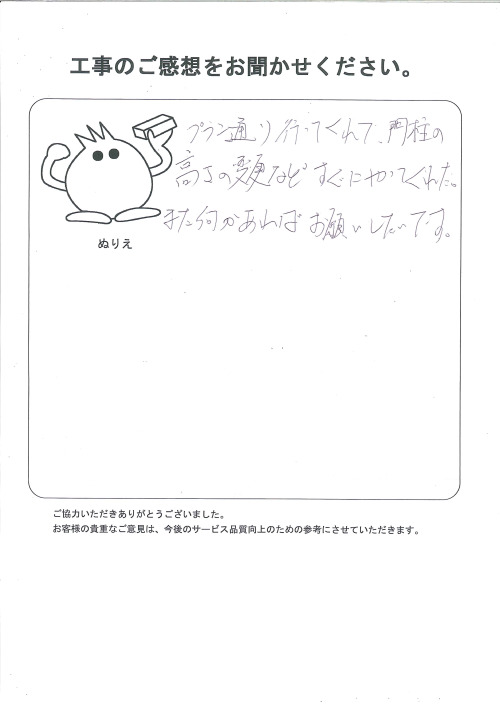 工事のご感想をお聞かせください。
プラン通り行ってくれて、門柱の
高さの変更などすぐにやってくれた。
また何かあればお願いしたいです。
ぬりえ
ご協力いただきありがとうございました。
お客様の貴重なご意見は、今後のサービス品質向上のための参考にさせていただきます。